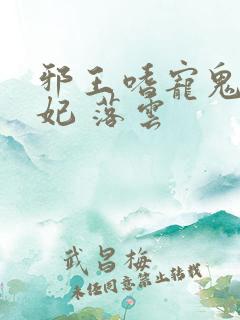 邪王嗜寵鬼
妃 落雲
武昌梅
未任同意禁止转载